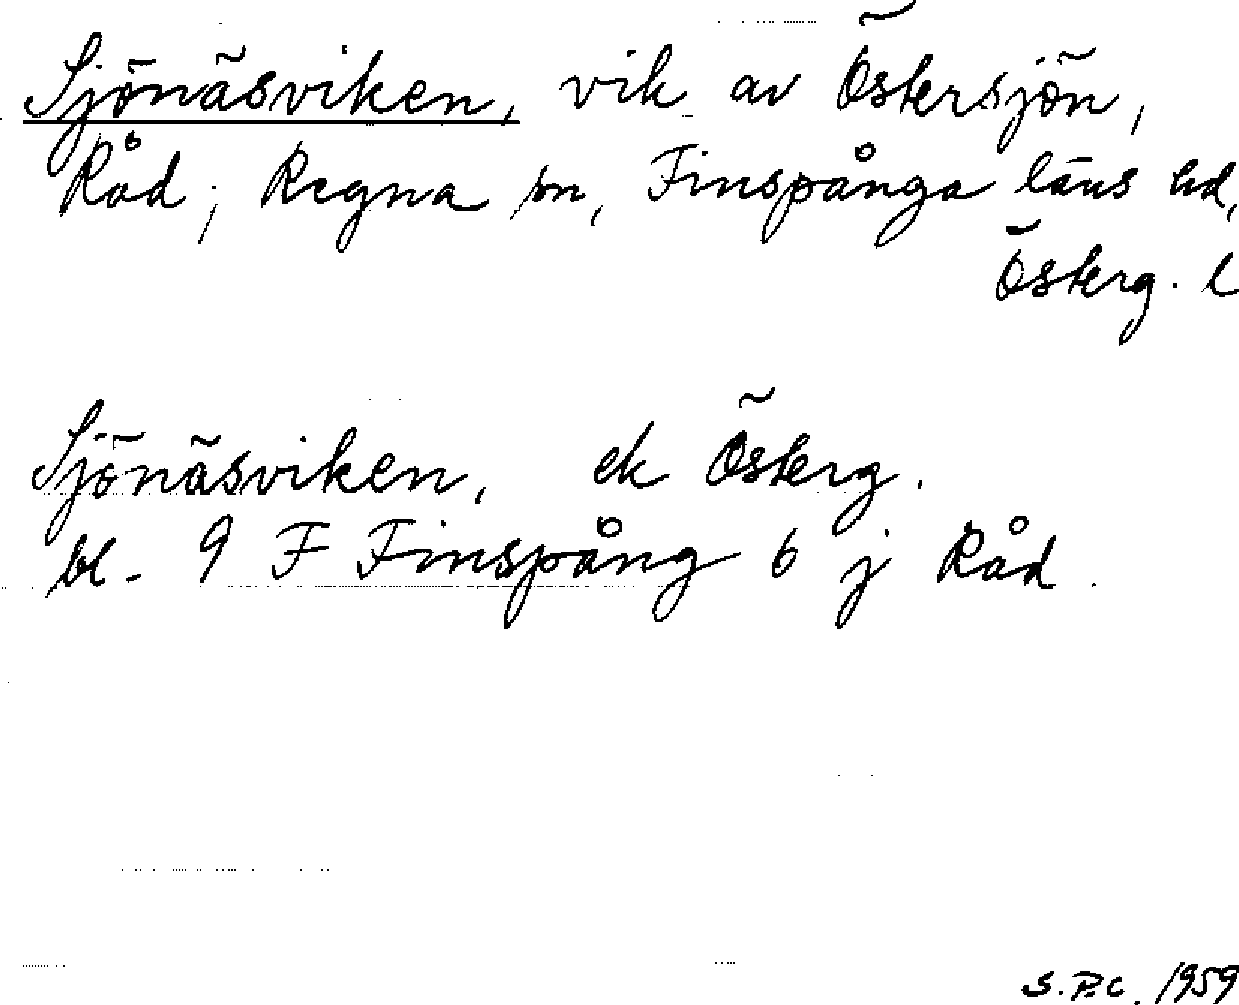 Sjönäsviken, vik av Östersjön,
Råd, Regna sn, Finspånga läns hd,
Österg. l
Sjönäsviken, ek Österg.
bl. 9 F Finspång 6 j Råd.
S.P.C. 1959